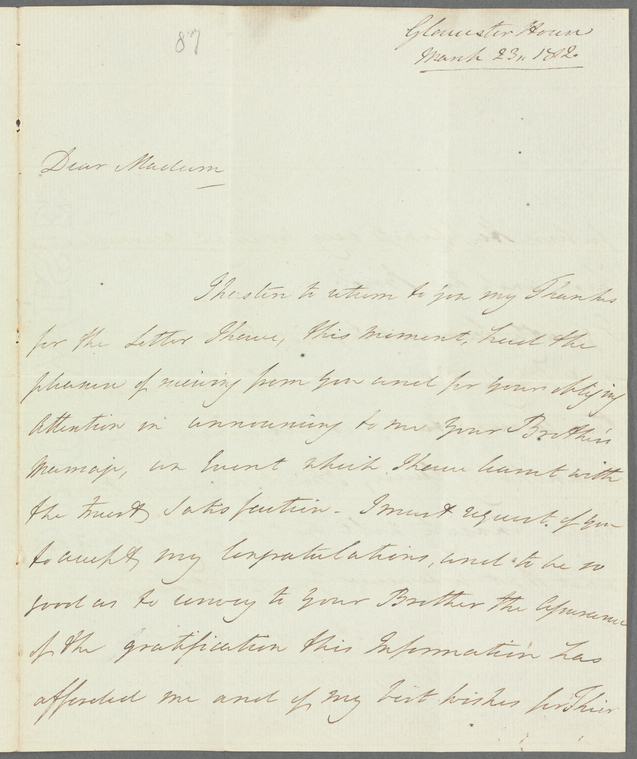 87
Gloucester House
March 23,, 1812.
Dear Madam
I hasten to return to you my Thanks
for the Letter I have, this moment, had the
pleasure of receiving from you and for your obliging
Attention in announcing to me your Brother's
Marriage, an Event which I have learnt with
the truest satisfaction - I must request of you
to accept, my Congratulations, and to be so
good as to convey to your Brother the Assurance
of the gratification this Information has
afforded me and of my best wishes for Their